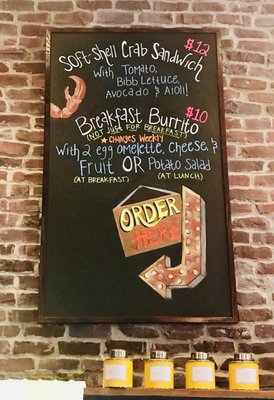 Soft-Shell Crab Sandwich $12
With Tomato,
Bibb Lettuce,
Avocado & Aioli!
Breakfast Burrito $10
(NOT JUST FOR BREAKFAST)
★ CHANGES WEEKLY
With 2 egg omelette, Cheese, &
Fruit OR Potato Salad
(AT BREAKFAST) (AT LUNCH)
ORDER
HERE